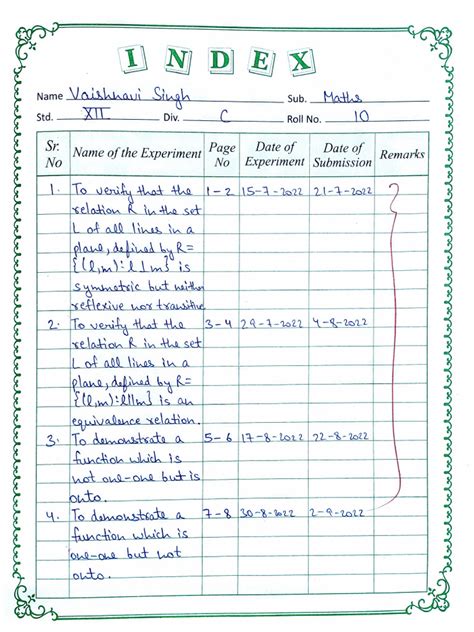 INDEX
Name Vaishnavi Singh Sub. Maths
Std. XII Div. C Roll No. 10
Sr. No Name of the Experiment Page No Date of Experiment Date of Submission Remarks
1. To verify that the 1-2 15-7-2022 21-7-2022
relation R in the set
L of all lines in a
plane, defined by R=
{(l,m):l⊥m} is
symmetric but neither
reflexive nor transitive
2. To verify that the 3-4 29-7-2022 4-8-2022
relation R in the set
L of all lines in a
plane, defined by R=
{(l,m):l||m} is an
equivalence relation.
3. To demonstrate a 5-6 17-8-2022 22-8-2022
function which is
not one-one but is
onto.
4. To demonstrate a 7-8 30-8-2022 2-9-2022
function which is
one-one but not
onto.